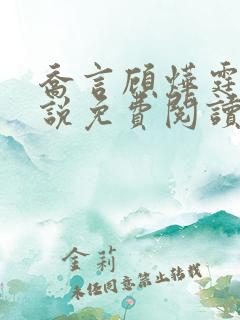 喬言顧燁霆
說免費閱讀
金莉
未经同意禁止转载